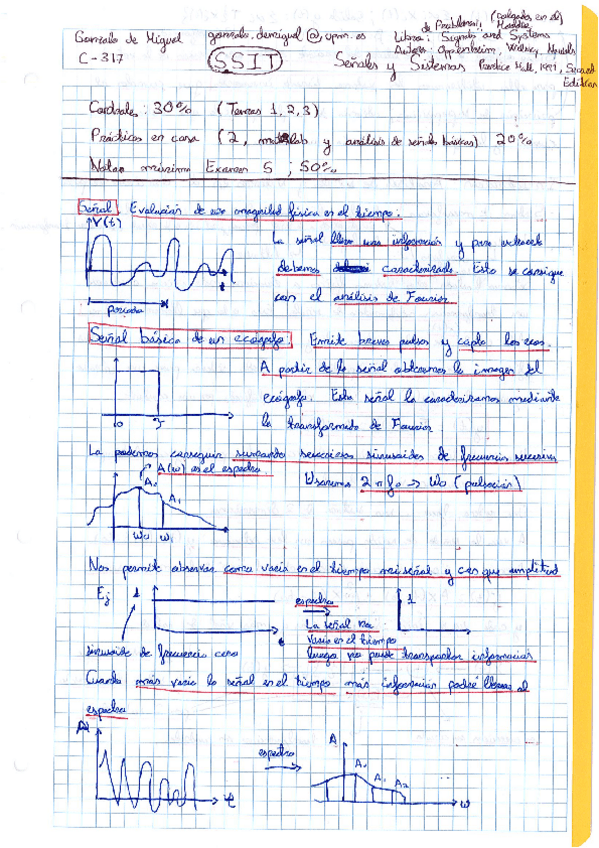 Gonzalo de Miguel
C-317
gonzalo.demiguel@upm.es
SSIT
de Problemas: (Colgados en el) Moodle
Libro: Signals and Systems
Autores: Oppenheim, Willsky, Nawab
Señales y Sistemas Prentice Hall, 1997, Second
Edition
Controles: 30% (Temas 1, 2, 3)
Prácticas en casa (2, matlab y análisis de señales básicas) 20%
Notas mínima Examen 5 ; 50%
Señal Evolución de una magnitud física en el tiempo.
V(t)
t
periodo
La señal lleva una información y para extraerla
debemos caracterizarla. Esto se consigue
con el análisis de Fourier
Señal básica de un ecógrafo: Emite breves pulsos y capta los ecos.
A partir de la señal obtenemos la imagen del
ecógrafo. Esta señal la caracterizamos mediante
la transformada de Fourier
to T
La podemos conseguir sumando sinusoides de frecuencia sucesiva
A(w) es el espectro.
Ao
A1
wo w1
Usaremos 2πfo → wo (pulsación)
Nos permite observar como varía en el tiempo mi señal y con que amplitud
Ej 1
t
espectro
1
La señal no
varía en el tiempo
luego no puede transportar información
sinusoide de frecuencia cero
Cuanto más varíe la señal en el tiempo más información podré llevar al
espectro
A
t
espectro
A
Ao
A1
A2
w